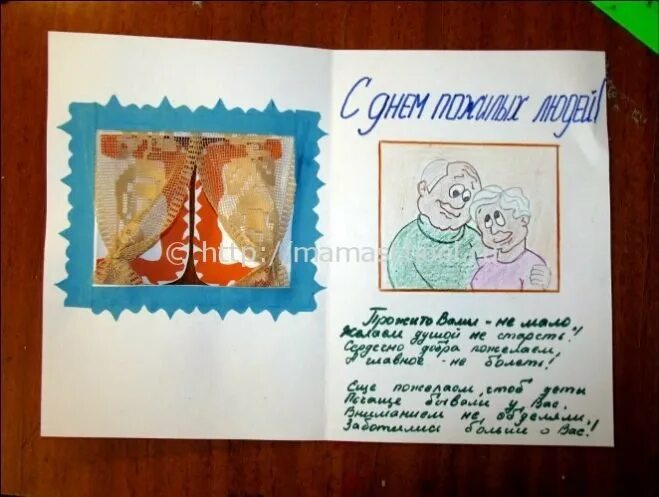 С днем пожилых людей!
© http://mamas
Прожито Вами - не мало,
Желаем душой не стареть!
Сердечно добра пожелаем,
А главное - не болеть!
Еще пожелаем, чтоб дети
Почаще бывали у Вас.
Вниманием не обделяли,
Заботились больше о Вас!